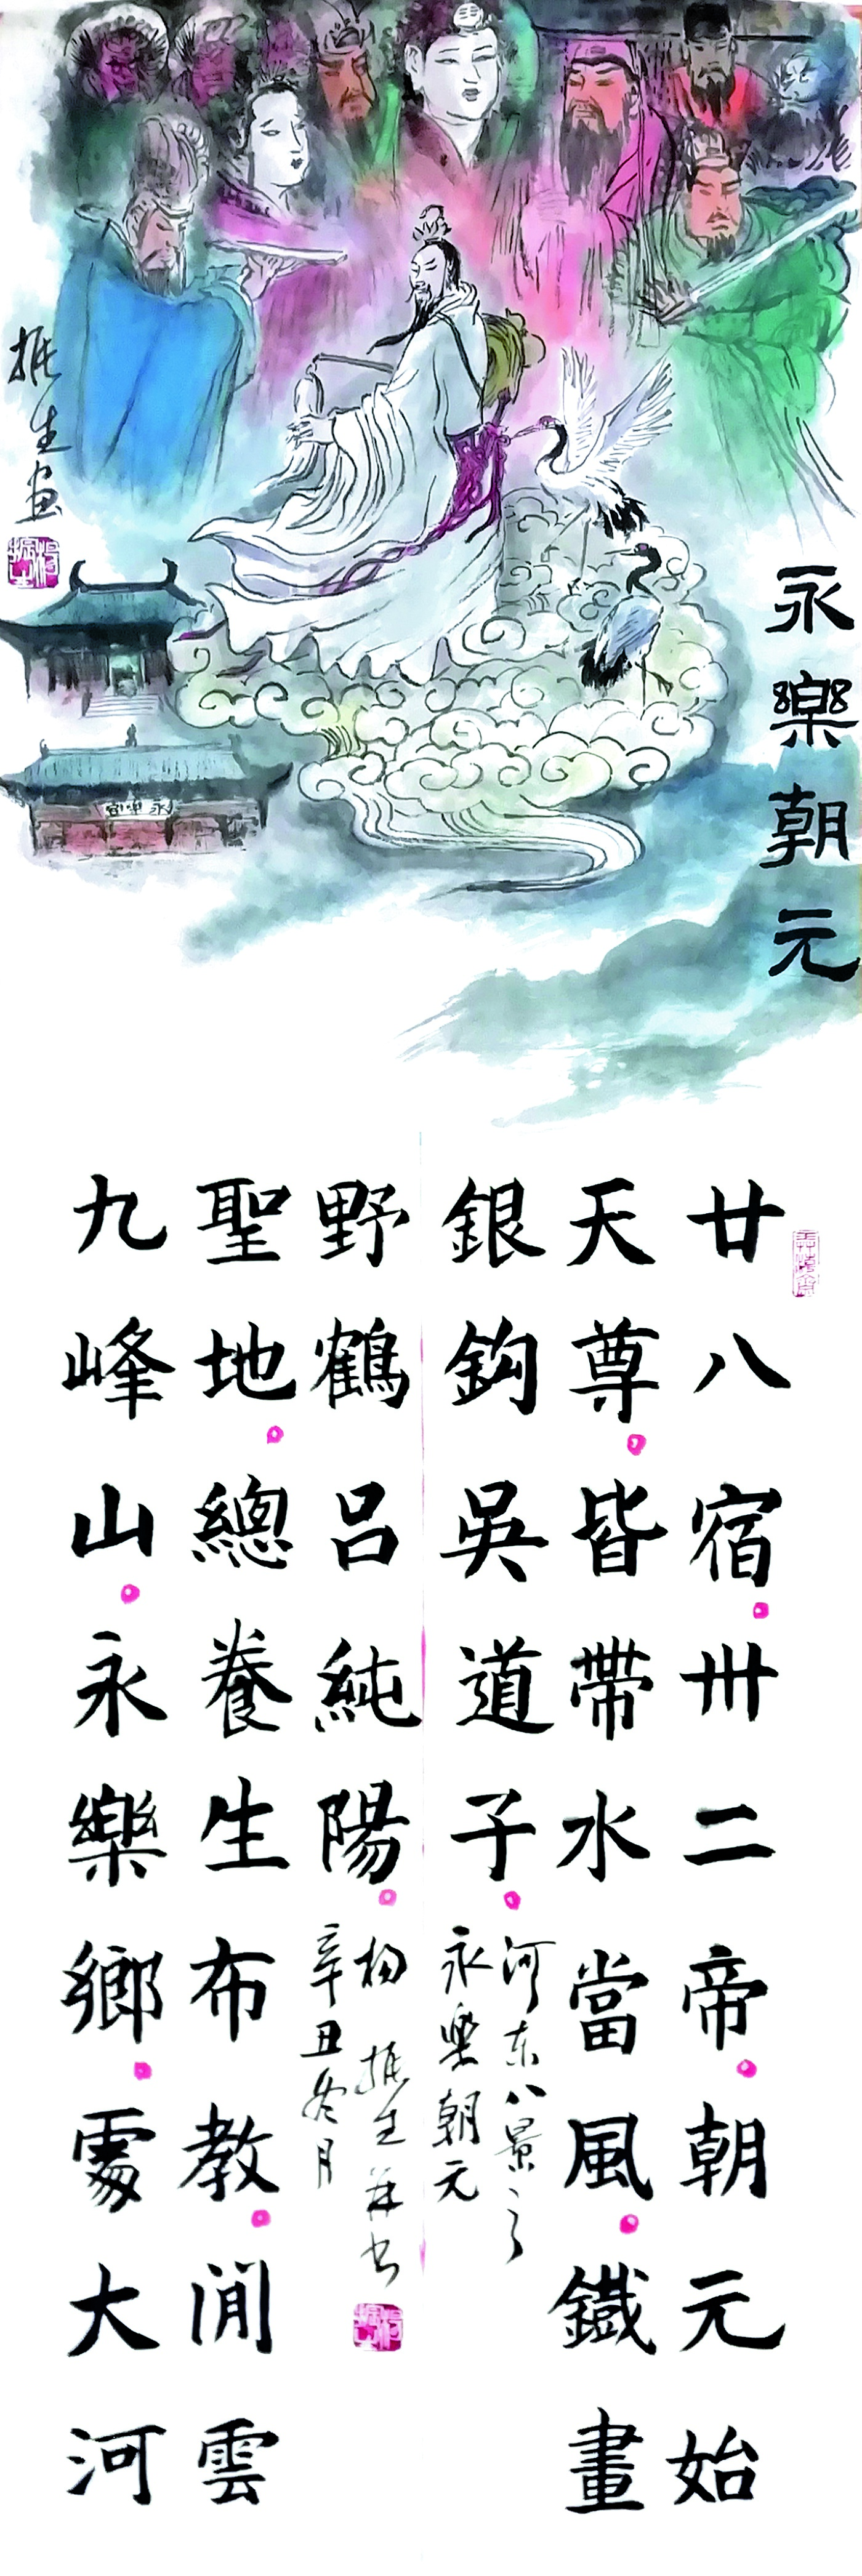 永樂朝元
振生画
永樂宮
廿八宿卅二帝朝元始
天尊皆帶水當風鐵畫
銀鈎吳道子
河东八景之
永樂朝元
九峰山永樂鄉處大河
聖地總養生布教閒雲
野鶴呂純陽
杨振生并书
辛丑冬月